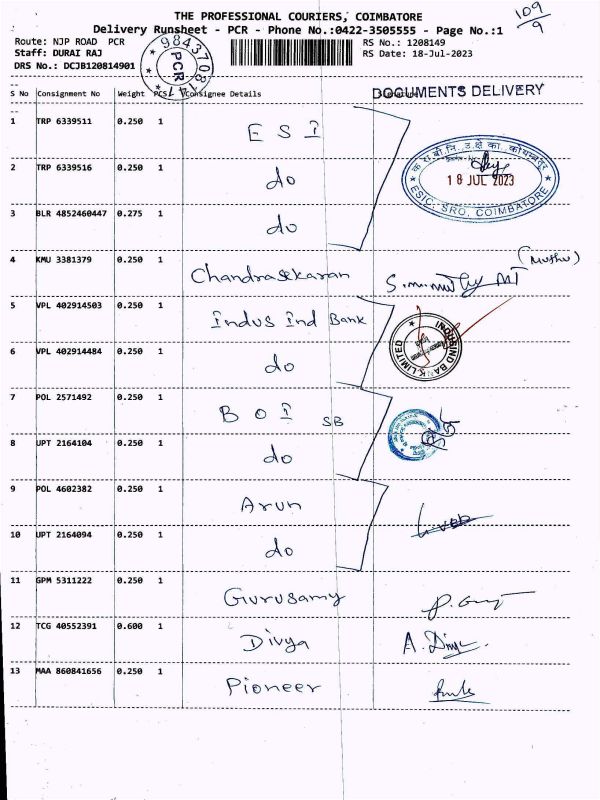 THE PROFESSIONAL COURIERS, COIMBATORE
109/9
Delivery Runsheet - PCR - Phone No.:0422-3505555 - Page No.:1
Route: NJP ROAD PCR
RS No.: 1208149
Staff: DURAI RAJ
RS Date: 18-Jul-2023
DRS No.: DCJB120814901
PCR
DOCUMENTS DELIVERY
S No Consignment No Weight PCS Consignee Details
1 TRP 6339511 0.250 1 ESI
2 TRP 6339516 0.250 1 do
18 JUL 2023
ESIC, SRO, COIMBATORE
3 BLR 4852460447 0.275 1 do
4 KMU 3381379 0.250 1 Chandrasekaran (Muthu)
5 VPL 402914503 0.250 1 Indus Ind Bank
INDUSIND BANK LIMITED
6 VPL 402914484 0.250 1 do
7 POL 2571492 0.250 1 BOI SB
8 UPT 2164104 0.250 1 do
9 POL 4602382 0.250 1 Arun
10 UPT 2164094 0.250 1 do
11 GPM 5311222 0.250 1 Gurusamy
12 TCG 40552391 0.600 1 Divya A. Divya
13 MAA 860841656 0.250 1 Pioneer